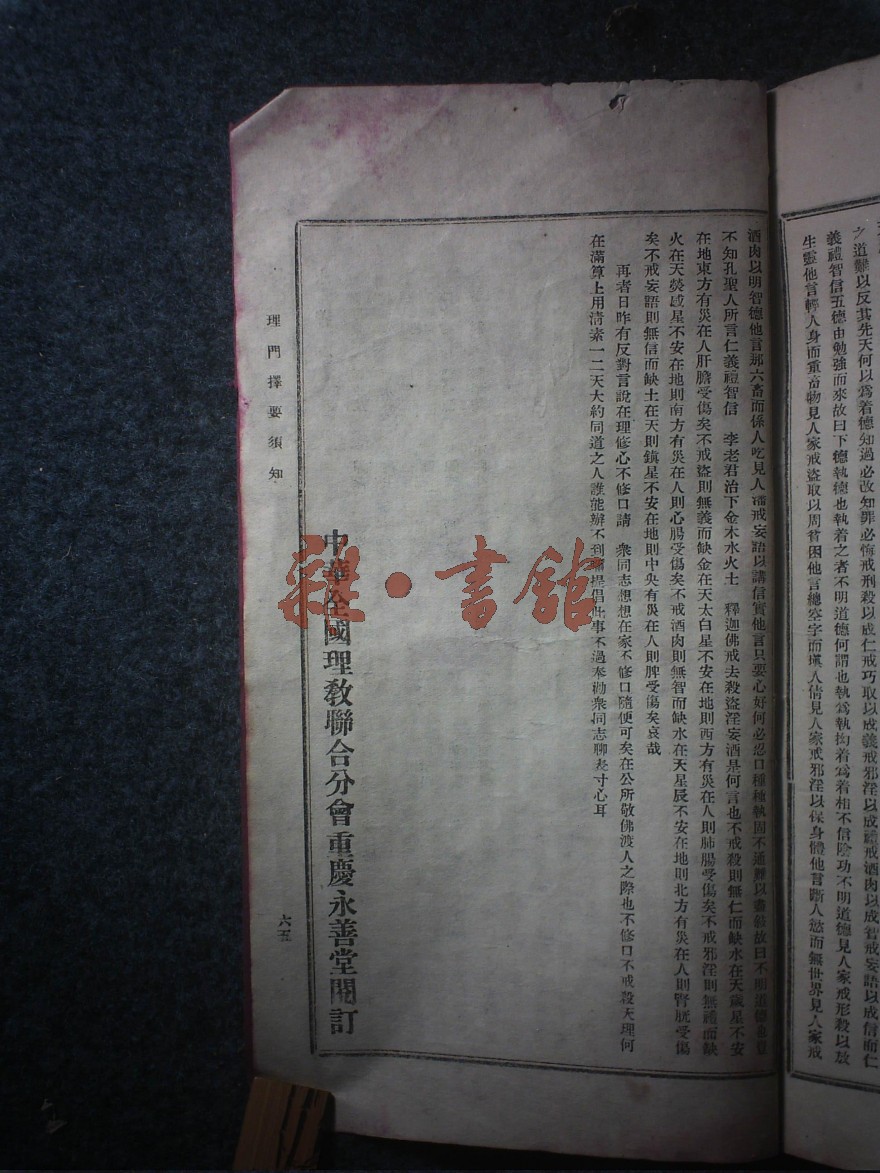 之道難以反其先天何以爲着德知過必改知罪必悔戒刑殺以成仁戒巧取以成義戒邪淫以成禮戒酒肉以成智戒妄語以成信而仁
義禮智信五德由勉強而來故曰下德執德也執着之者不明道德何謂也執爲執拘着爲着相不信陰功不明道德見人家戒形殺以放
生靈他言輕人身而重畜物見人家戒盜取以周貧困他言總空字而填人情見人家戒邪淫以保身體他言斷人慾而無世界見人家戒
酒肉以明智德他言那六畜而係人吃見人家戒妄語以講信實他言只要心好何必忍口種種執固不通難以盡敘故曰不明道德
不知孔聖人所言仁義禮智信 李老君治下金木水火土 釋迦佛戒去殺盜淫妄酒是何言也不戒殺則無仁而缺水在天歲星不安
在地東方有災在人肝膽受傷矣不戒盜則無義而缺金在天太白星不安在地則西方有災在人則肺腸受傷矣不戒邪淫則無禮而缺
火在天熒惑星不安在地則南方有災在人則心腸受傷矣不戒酒肉則無智而缺水在天星辰不安在地則北方有災在人則腎胱受傷
矣不戒妄語則無信而缺土在天則鎮星不安在地則中央有災在人則脾受傷矣哀哉
再者日昨有反對言說在理修心不修口請 衆同志想想在家不修口隨便可矣在公所敬佛渡人之際也不修口不戒殺天理何
在滿算上用清素一二天大約同道之人誰能辦不到 提倡此事不過奉勸衆同志聊表寸心耳
中華全國理教聯合分會重慶永善堂閣訂
理門擇要須知
六五
雜·書館